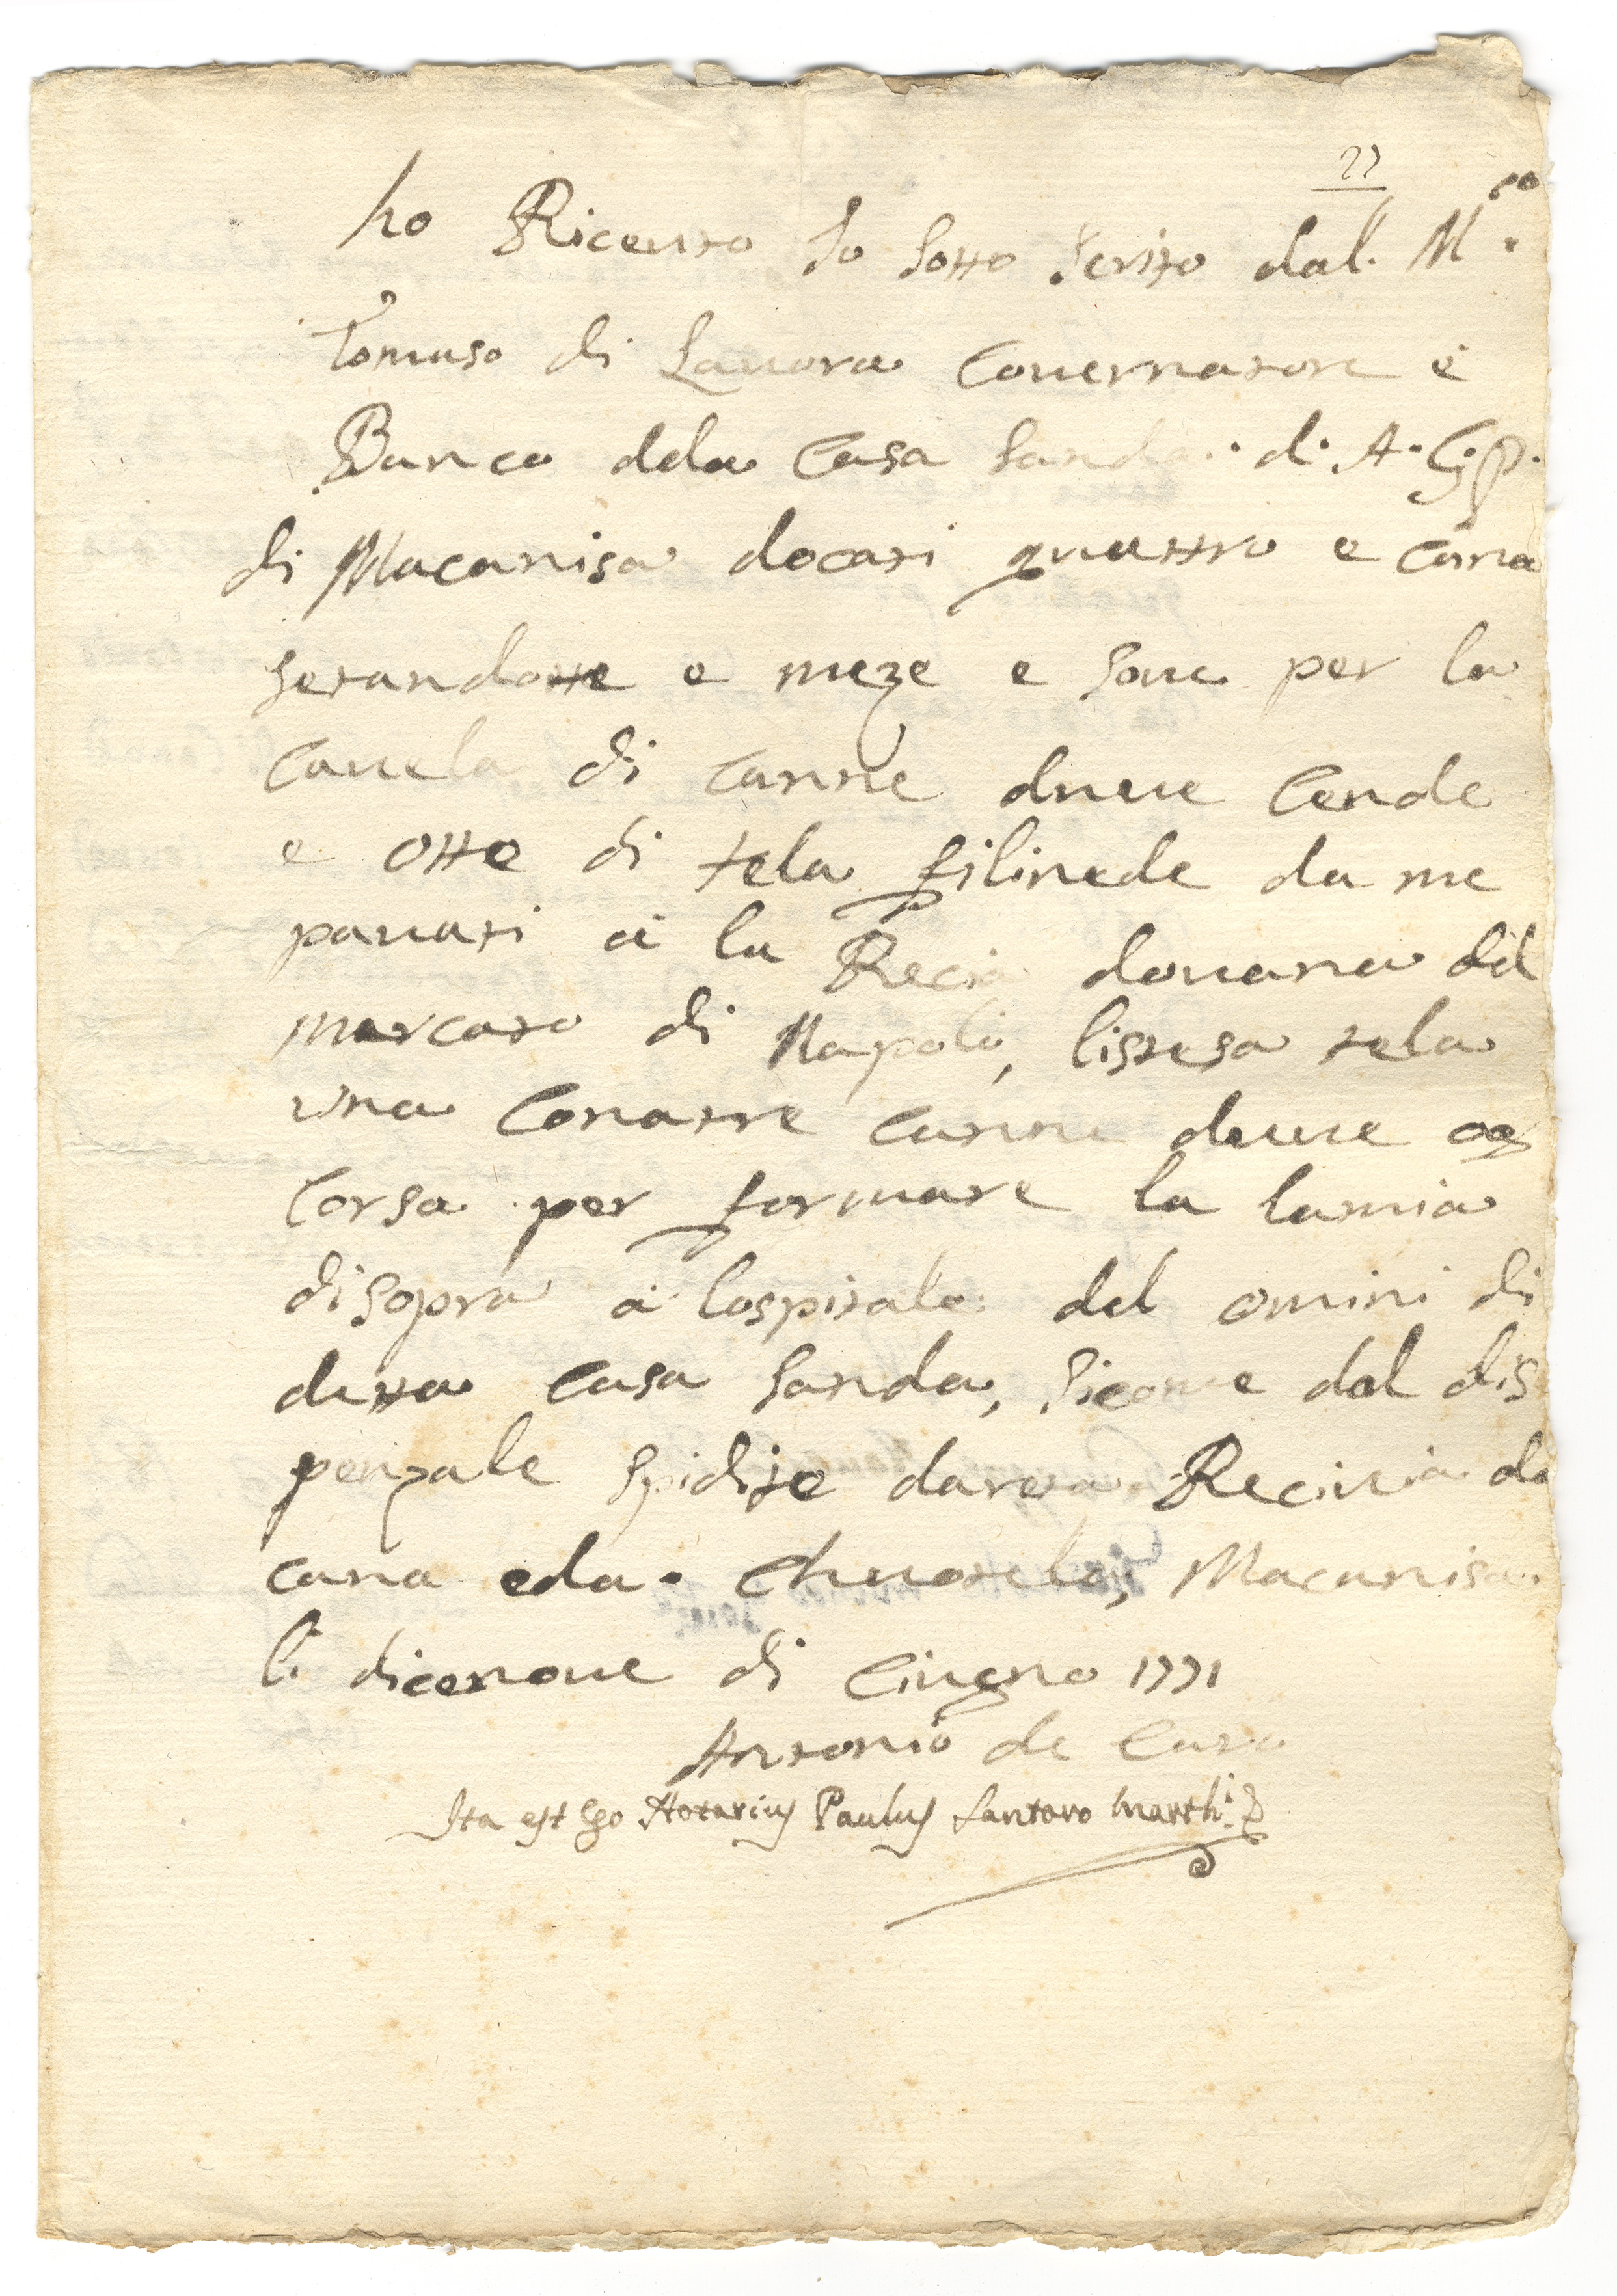 22
ho Riceuto Io sotto scrito dal. M.co
Tomaso di Lauora Couernatore e
Banco dela Casa Sanda. d. A. G. P.
di Macanisa docati quattro e Cana
setandotte e meze e sone per la
Cauela di canne dueue Cende
e otte di tela filinede da me
pauati à la Recia douana dil
mercato di Napoli, listesa tela
una Conatre canne deue
Corsa per formare la lamia
di sopra à lospitale del omini di
detta casa Sanda, sicome dal dis
penzale spidite dareta Recivia do
cana eda. Macanisa
li dicenoue di Ciugno 1771
Antonio de Curo
Ita est Ego Notarius Paulus Santoro Marth.